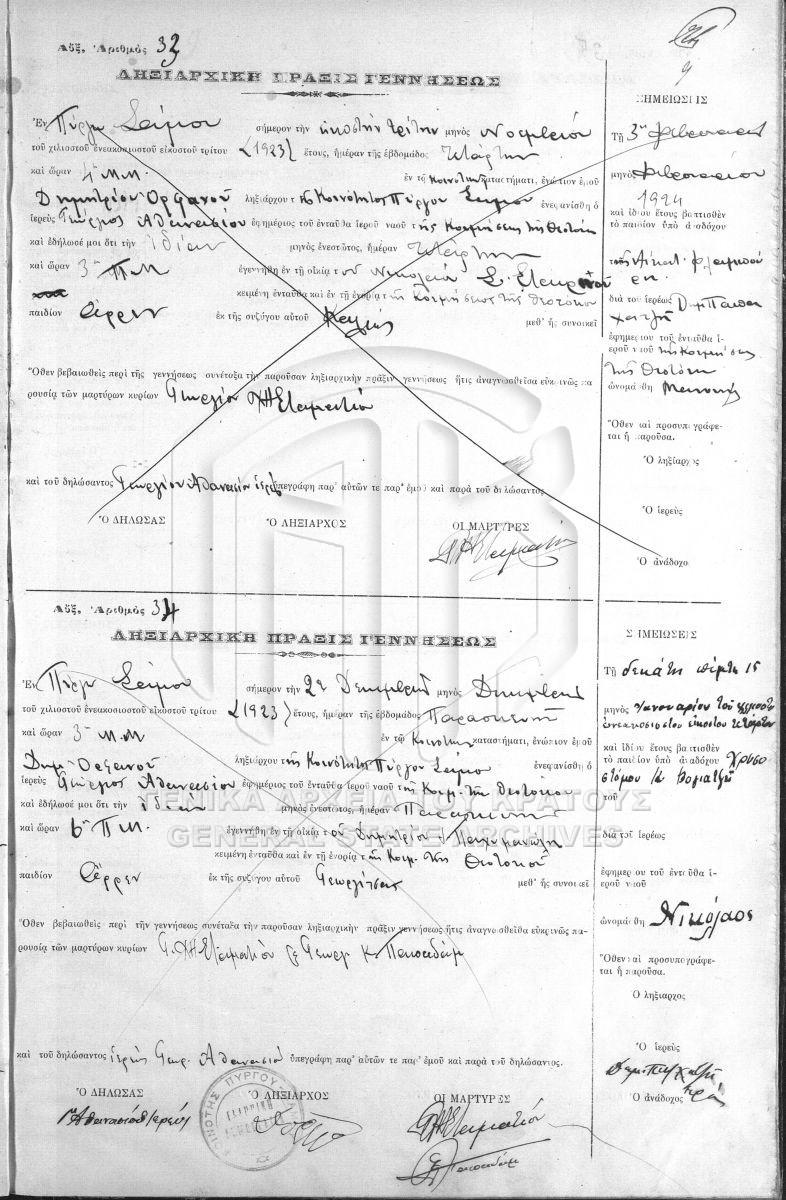 Αὔξ. Ἀριθμὸς 33
ΛΗΞΙΑΡΧΙΚΗ ΠΡΑΞΙΣ ΓΕΝΝΗΣΕΩΣ
Ἐν Πύργῳ Σάμου σήμερον τὴν εἰκοστὴν τρίτην μηνὸς Νοεμβρίου
τοῦ χιλιοστοῦ ἐνεακοσιοστοῦ εἰκοστοῦ τρίτου (1923) ἔτους, ἡμέραν τῆς ἑβδομάδος
καὶ ὥραν 4 μ.μ. ἐν τῷ Κοινοτικῷ καταστήματι, ἐνώπιον ἐμοῦ
Δημητρίου Ὀρφανοῦ ληξιάρχου τῆς Κοινότητος Πύργου Σάμου ἐνεφανίσθη ὁ
ἱερεὺς Γεώργιος Ἀθανασίου ἐφημέριος τοῦ ἐνταῦθα ἱεροῦ ναοῦ τῆς Κοιμήσεως τῆς Θεοτόκου
καὶ ἐδήλωσέ μοι ὅτι τὴν ἰδίαν μηνὸς ἐνεστῶτος, ἡμέραν
καὶ ὥραν 3 π.μ. ἐγεννήθη ἐν τῇ οἰκίᾳ τοῦ Νικολάου Σ.
κειμένῃ ἐνταῦθα καὶ ἐν τῇ ἐνορίᾳ τῆς Κοιμήσεως τῆς Θεοτόκου
παιδίον ἄρρεν ἐκ τῆς συζύγου αὐτοῦ μεθ' ἧς συνοικεῖ
Ὅθεν βεβαιωθεὶς περὶ τῆς γεννήσεως συνέταξα τὴν παροῦσαν ληξιαρχικὴν πρᾶξιν γεννήσεως ἥτις ἀναγνωσθεῖσα εὐκρινῶς πα-
ρουσίᾳ τῶν μαρτύρων κυρίων Γεωργίου Χ"Σταματίου
καὶ τοῦ δηλώσαντος Γεωργίου Ἀθανασίου ἱερέως ὑπεγράφη παρ' αὐτῶν τε παρ' ἐμοῦ καὶ παρὰ τοῦ δηλώσαντος
Ὁ ΔΗΛΩΣΑΣ Ὁ ΛΗΞΙΑΡΧΟΣ ΟΙ ΜΑΡΤΥΡΕΣ
ΣΗΜΕΙΩΣΕΙΣ
Τῇ 3ῃ Φεβρουαρίου
μηνὸς Φεβρουαρίου
1924
καὶ ἰδίου ἔτους βαπτισθὲν
τὸ παιδίον ὑπὸ ἀναδόχου
διὰ τοῦ ἱερέως Δημ. Παπα
χατζῆ
ἐφημερίου τοῦ ἐνταῦθα ἱ-
εροῦ ναοῦ τῆς Κοιμήσεως
τῆς Θεοτόκου
ὠνομάσθη
Ὅθεν καὶ προσυπογράφε-
ται ἡ παροῦσα.
Ὁ ληξίαρχος
Ὁ ἱερεὺς
Ὁ ἀνάδοχος
Αὔξ. Ἀριθμὸς 34
ΛΗΞΙΑΡΧΙΚΗ ΠΡΑΞΙΣ ΓΕΝΝΗΣΕΩΣ
Ἐν Πύργῳ Σάμου σήμερον τὴν 22 Δεκεμβρίου μηνὸς Δεκεμβρίου
τοῦ χιλιοστοῦ ἐνεακοσιοστοῦ εἰκοστοῦ τρίτου (1923) ἔτους, ἡμέραν τῆς ἑβδομάδος Παρασκευὴν
καὶ ὥραν 3 μ.μ. ἐν τῷ Κοινοτικῷ καταστήματι, ἐνώπιον ἐμοῦ
Δημ. Ὀρφανοῦ ληξιάρχου τῆς Κοινότητος Πύργου Σάμου ἐνεφανίσθη ὁ
ἱερεὺς Γεώργιος Ἀθανασίου ἐφημέριος τοῦ ἐνταῦθα ἱεροῦ ναοῦ τῆς Κοιμ. τῆς Θεοτόκου
καὶ ἐδήλωσέ μοι ὅτι τὴν ἰδίαν μηνὸς ἐνεστῶτος, ἡμέραν Παρασκευὴν
ΓΕΝΙΚΑ ΑΡΧΕΙΑ ΤΟΥ ΚΡΑΤΟΥΣ
GENERAL STATE ARCHIVES
καὶ ὥραν 6 π.μ. ἐγεννήθη ἐν τῇ οἰκίᾳ τοῦ Δημητρίου
κειμένῃ ἐνταῦθα καὶ ἐν τῇ ἐνορίᾳ τῆς Κοιμ. τῆς Θεοτόκου
παιδίον ἄρρεν ἐκ τῆς συζύγου αὐτοῦ Γεωργίτσας μεθ' ἧς συνοικεῖ
Ὅθεν βεβαιωθεὶς περὶ τὴν γεννήσεως συνέταξα τὴν παροῦσαν ληξιαρχικὴν πρᾶξιν γεννήσεως ἥτις ἀναγνωσθεῖσα εὐκρινῶς πα-
ρουσίᾳ τῶν μαρτύρων κυρίων Γ. Χ"Σταματίου & Γεωργ. Κ. Παπαδάμ
καὶ τοῦ δηλώσαντος ἱερέως Γεωρ. Ἀθανασίου ὑπεγράφη παρ' αὐτῶν τε παρ' ἐμοῦ καὶ παρὰ τοῦ δηλώσαντος.
Ὁ ΔΗΛΩΣΑΣ Ὁ ΛΗΞΙΑΡΧΟΣ ΟΙ ΜΑΡΤΥΡΕΣ
Ἀθανασίου ἱερεύς
ΣΗΜΕΙΩΣΕΙΣ
Τῇ δεκάτῃ πέμπτῃ 15
μηνὸς Ἰανουαρίου τοῦ χιλιοστοῦ
ἐνεακοσιοστοῦ εἰκοστοῦ τετάρτου
καὶ ἰδίου ἔτους βαπτισθὲν
τὸ παιδίον ὑπὸ ἀναδόχου Χρυσο
στόμου
τοῦ
διὰ τοῦ ἱερέως
ἐφημερίου τοῦ ἐνταῦθα ἱ-
εροῦ ναοῦ
ὠνομάσθη Νικόλαος
Ὅθεν καὶ προσυπογράφε-
ται ἡ παροῦσα.
Ὁ ληξίαρχος
Ὁ ἱερεὺς
Ὁ ἀνάδοχος